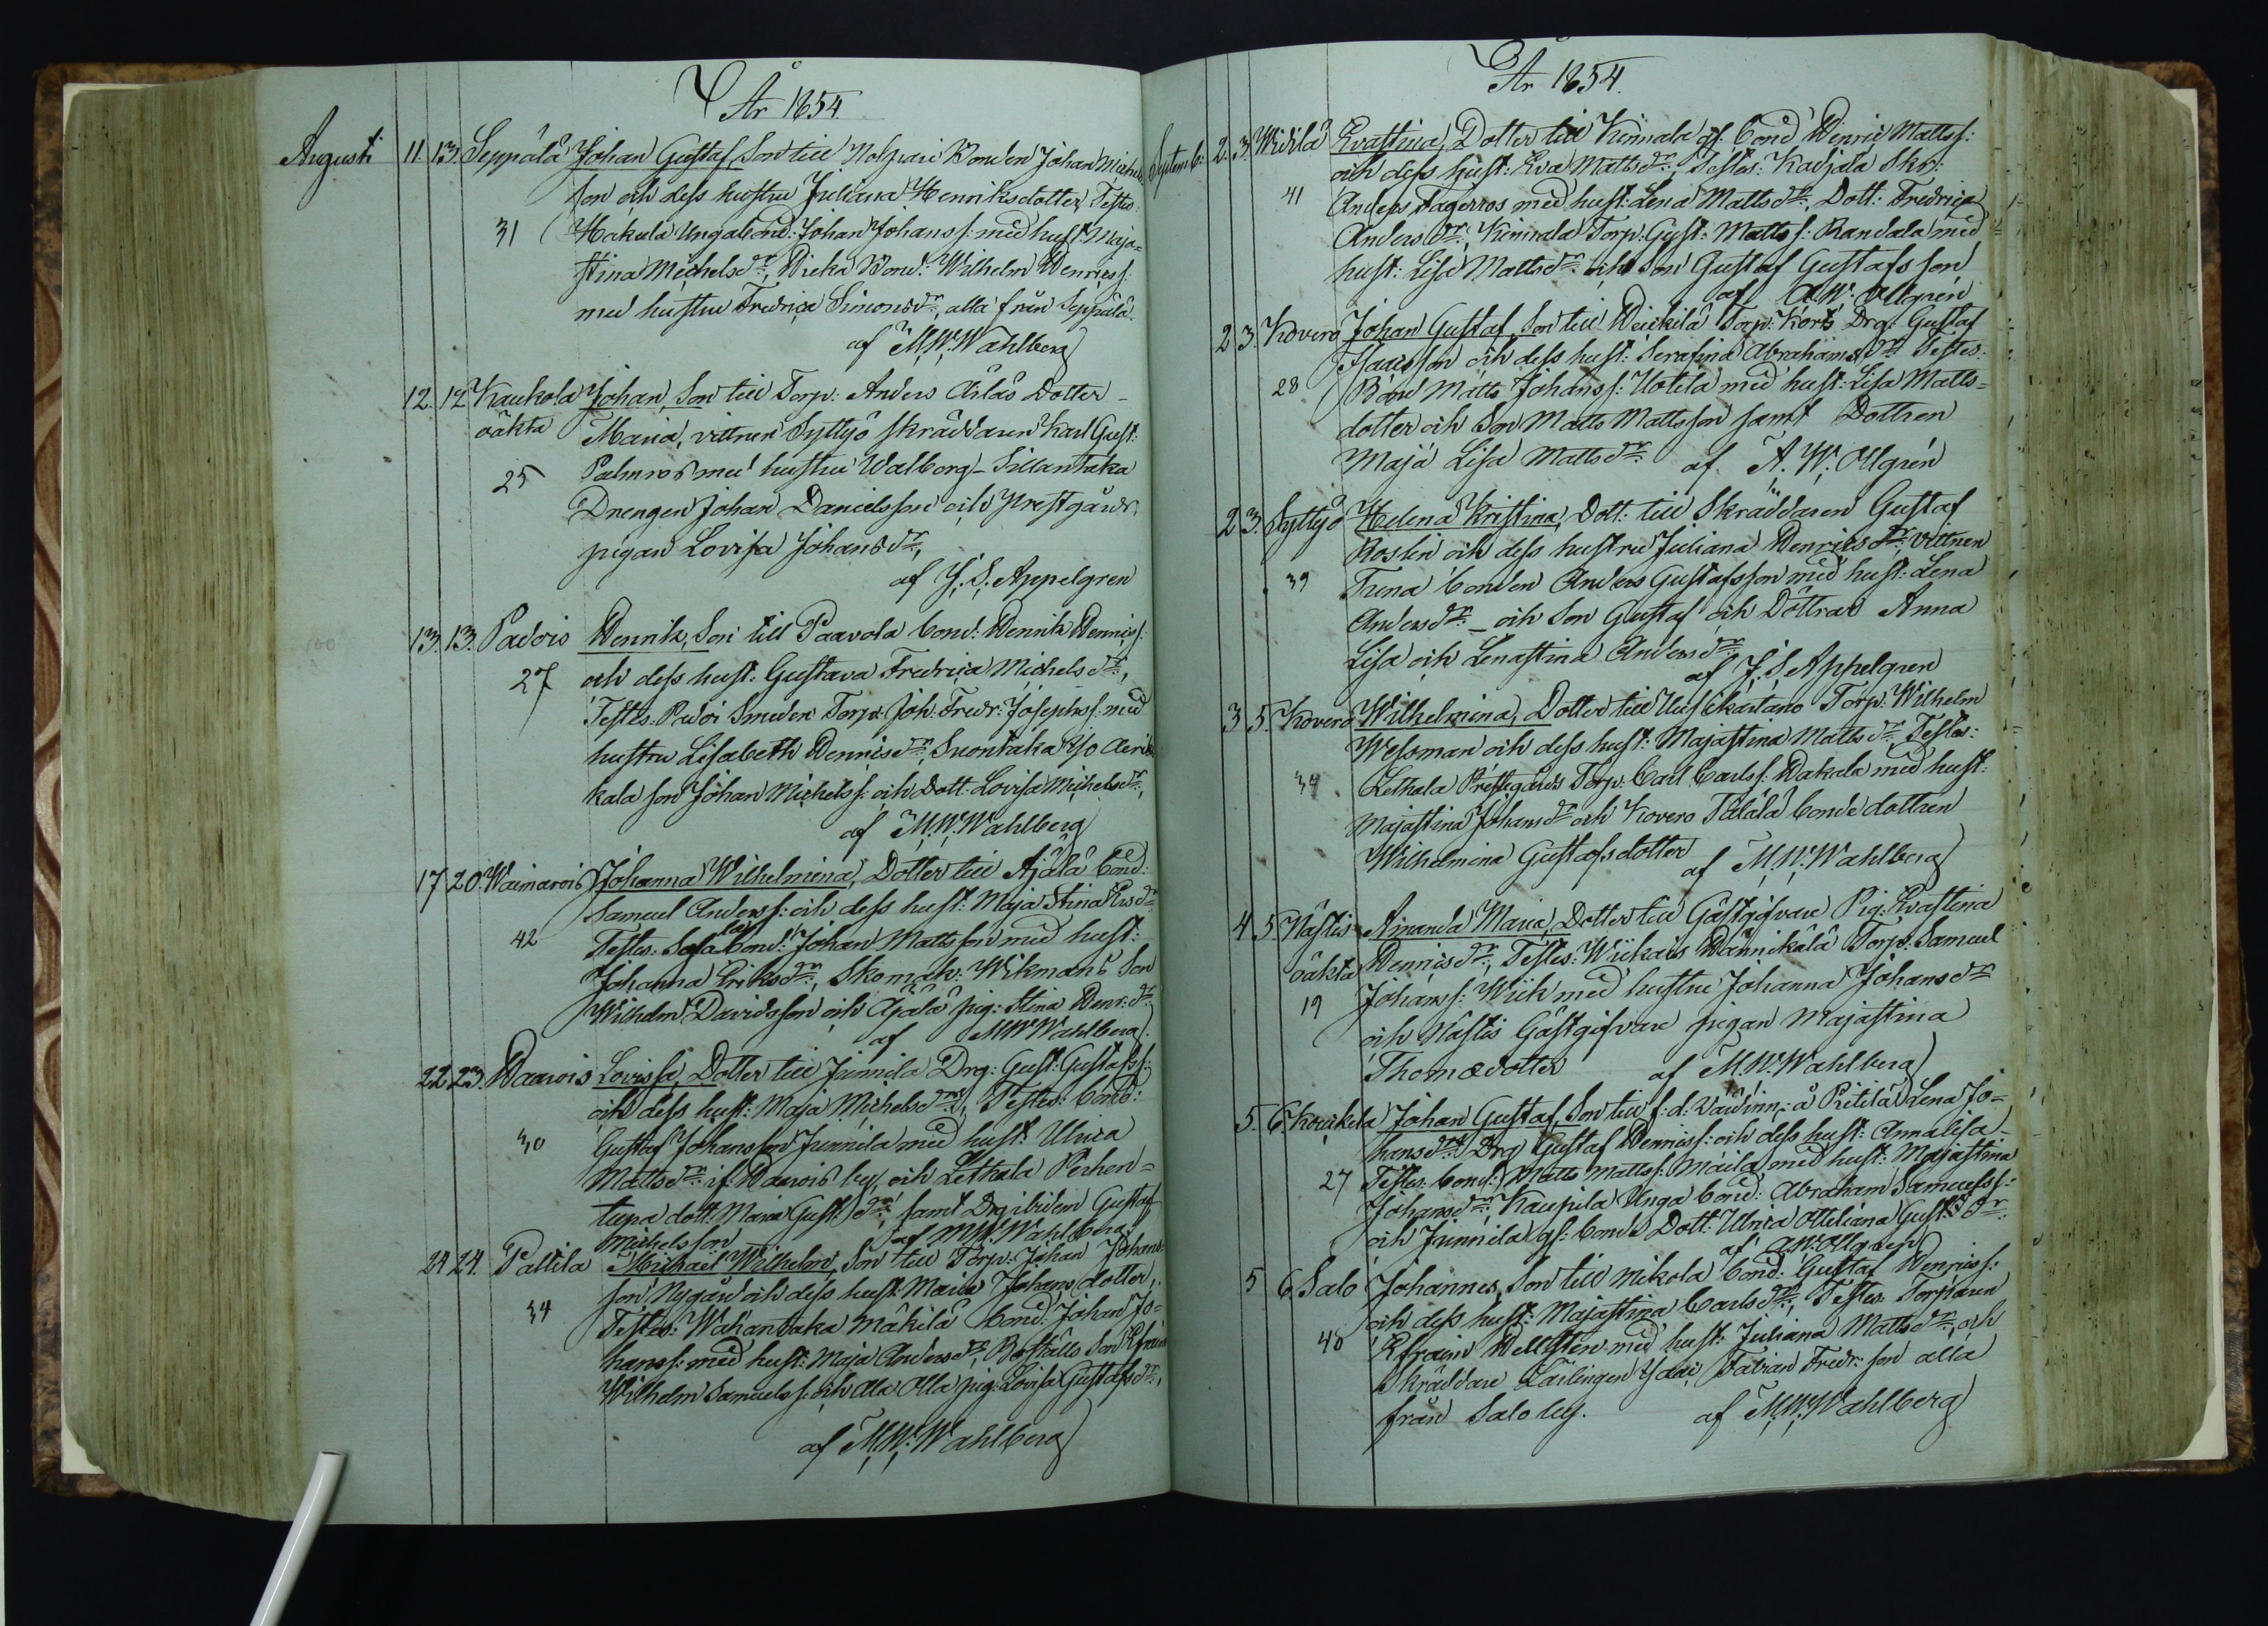 År 1854
Augusti 11. 13. Seppälä Johan Gustaf, Son till Nolpari Bonden Johan Michels
son och dess hustru Juliana Henriksdotter, Testes:
31 Hakula Unga bond: Johan Johanss: med hust: Maja=
stina Michelsdr, Wicka Bond: Wilhelm Henricss:
med hustru Fredrica Simonsdr, alla från Seppälä.
af M.W. Wahlberg
12. 12 Kaukola Johan, Son till Torp: Anders Ailas Dotter
oäkta Maria, vittnen Syttyö skräddaren Karl Gust:
25 Palmros med hustru Walborg - Sillantaka
Drengen Johan Danielsson och prestgårds
pigan Lovisa Johansdr,
af J. S. Appelgren
13. 13. Padois Henrik, Son till Paavola bond: Henrik Henricss:
27 och dess hust: Gustava Fredrica Michelsdr,
Testes: Padoi Smeden Torp: Joh: Fredr: Josephss: med
hustru Lisabeth Henricsdr, Suontaka Yso Aerik
kala son Johan Michelss: och Dott: Lovisa Michelsdr,
af M.W. Wahlberg
17 20. Wainarois Johanna Wilhelmina, Dotter till Ajälä bond:
Samuel Anderss: och dess hust: Maja Stina Ersdr
42 Testes: bond: Johan Mattsson med hust:
Johanna Eriksdr, Skomak: Wikmans Son
Wilhelm Davidsson och Ajälä pig: Stina Henr:dr
af M.W. Wahlberg
22 23. Haarois Lovissa, Dotter till Junnila Drg: Gust: Gustafss:
och dess hust: Maja Michelsdr, Testes: bond:
30 Gustaf Johansson Junnila med hust: Ulrica
Mattsdr if: Haarois by, och Lethala Perhen=
tupa dott: Maria Gust:dr, samt Drg ibidem Gustaf
Michelsson af M.W. Wahlberg
24 24. Pattila Michael Wilhelm, Son till Torp: Johan Johans=
son Nygård och dess hust: Maria Johansdotter,
34 Testes: Wahantaka Mäkilä bond: Johan Jo=
hanss: med hust: Maja Andersdr, Boställs Son Efraim
Wilhelm Samuelss: och Ala Olla pig: Lovisa Gustafsdr,
af M.W. Wahlberg
År 1854.
Septemb: 2. 3. Widilä Evastina, Dotter till Kinnala gf. bond Henric Mattss:
och dess hust: Eva Mattsdr, Testes: Kadjala Skr:
41 Anders Fagerros med hust: Lena Mattsdr, Dott: Fredrica
Andersdr, Kinnala Torp: Gust: Mattss: Randala med
hust: Lisa Mattsdr och Son Gustaf Gustafsson
af A.W. Allgrén
2 3. Kovero Johan Gustaf, Son till Heikilä Torp: Korts Drg: Gustaf
Isacsson och dess hust: Serafina Abrahamsdr Testes:
28 Bond Matts Johanss: Uotila med hust: Lisa Matts=
dotter och Son Matts Mattsson samt Dottren
Maja Lisa Mattsdr. af A. W. Allgrén
2 3. Syttyö Helena Kristina, Dott: till Skräddaren Gustaf
Roslin och dess hustru Juliana Henricsdr, vittnen
39 Truna bonden Anders Gustafsson med hust: Lena
Andersdr - och Son Gustaf och Döttrar Anna
Lisa och Lenastina Andersdr
af J. S. Appelgren
3 5. Kovero Wilhelmina, Dotter till Uusikartano Torp: Wilhelm
Wessman och dess hust: Majastina Mattsdr Testes:
34 Lethala Prestegårds Torp: Carl Carlss: Hakala med hust:
Majastina Johansdr och Kovero Tälälä bonde dottren
Wilhelmina Gustafsdotter af M.W. Wahlberg
4 5. Nästis Amanda Maria, Dotter till Gästgifvare Pig: Evastina
oäkta Henricsdr, Testes: Wickais Hännikälä Torp: Samuel
19 Johanss: Wiik med hustru Johanna Johansdr
och Nästis Gästgifvare pigan Majastina
Thomædotter af M.W. Wahlberg
5. 6. Kouikela Johan Gustaf, Son till f:d: å Pitilä Lena Jo=
hansdr, Drg Gustaf Henricss: och dess hust: Annalisa
27 Testes: bond: Matts Mattss: Maila med hust: Majastina
Johansdr, Kaupila Unga bond: Abraham Samuelss:
och Junnila gf: bonde Dott: Ulrica Ottiliana Gust:dr.
af A.W. Allgren
5 6 Salo Johannes, Son till Mikola bond: Gustaf Henricss:
och dess hust: Majastina Carlsdr, Testes: Torparen
40 Efraim Hellsten med hust: Juliana Mattsdr, och
Skräddare Lärlingen Isaac Fabian Fredr:son alla
från Salo by. af M.W. Wahlberg